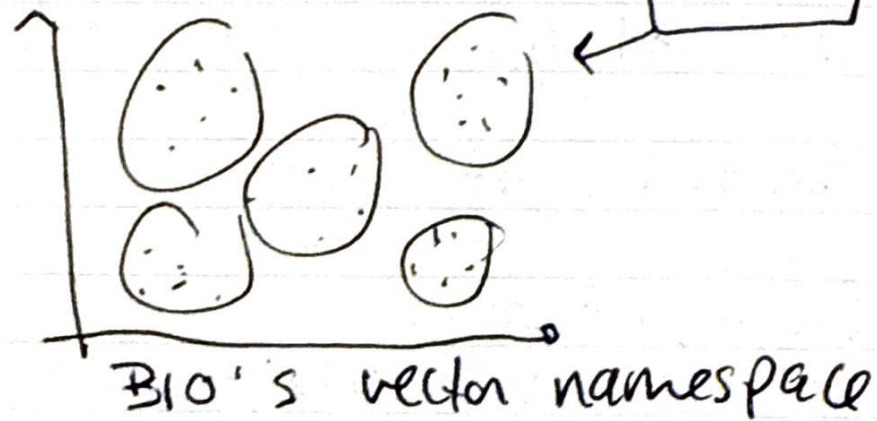 BIO's vector namespace